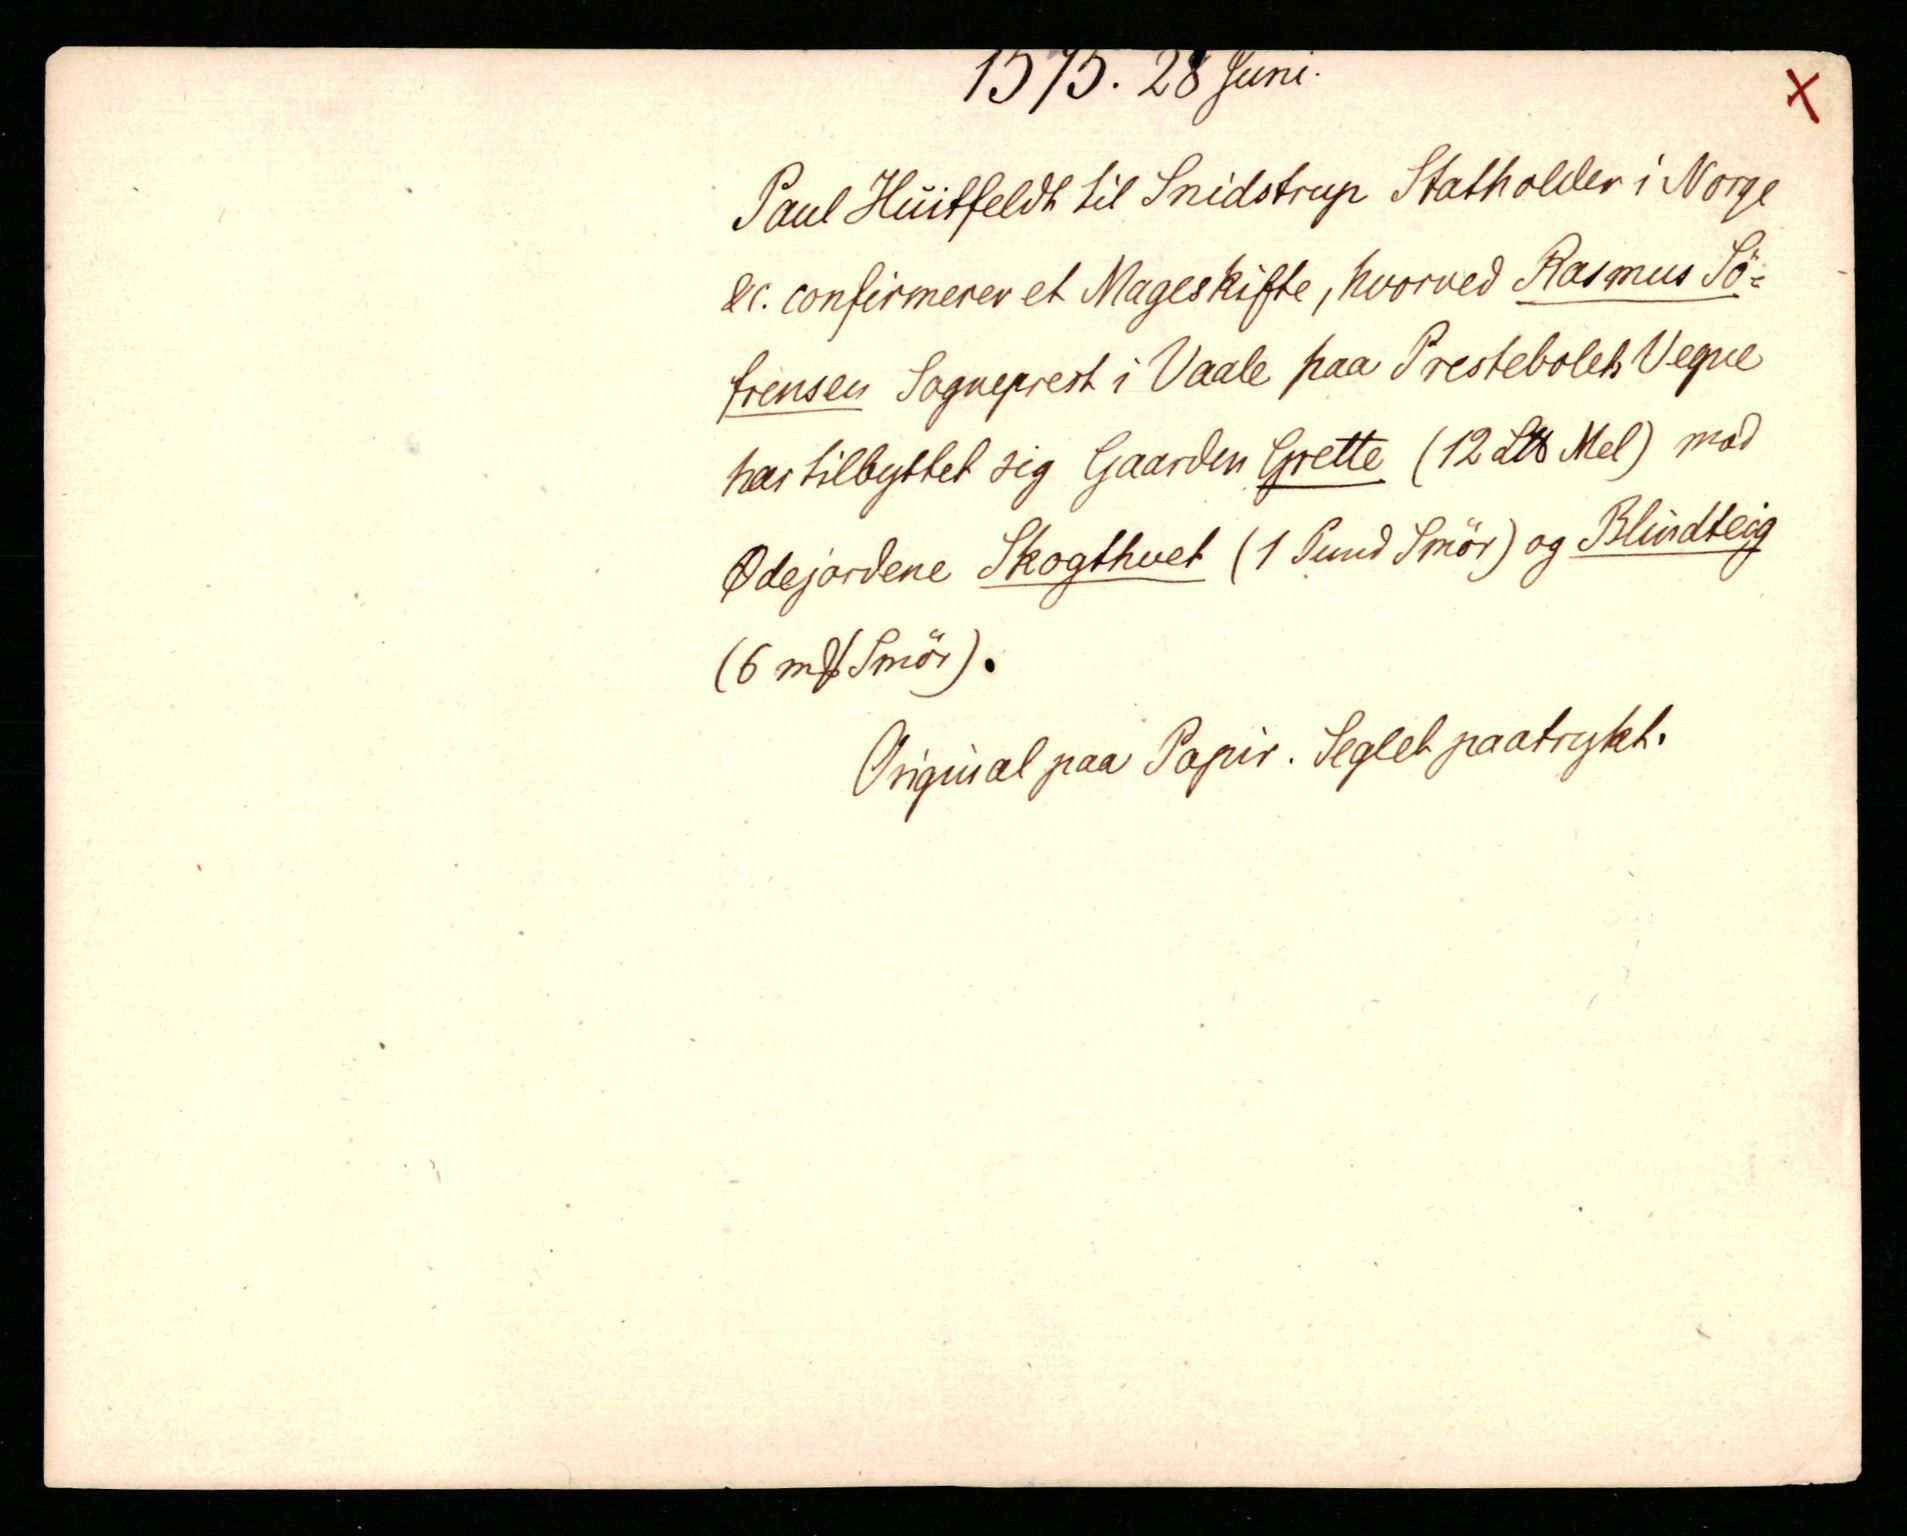 1575. 28 Juni.
X
Paul Huitfeldt til Snidstrup Statholder i Norge
&c. confirmerer et Mageskifte, hvorved Rasmus Sö-
frensen Sogneprest i Vaale paa Prestebolets Vegne
har tilbyttet sig Gaarden Grette (12 L℔ Mel) mod
Ødejordene Skogthvet (1 Pund Smör) og Blindteig
(6 m℔ Smör).
Original paa Papir. Seglet paatrykt.